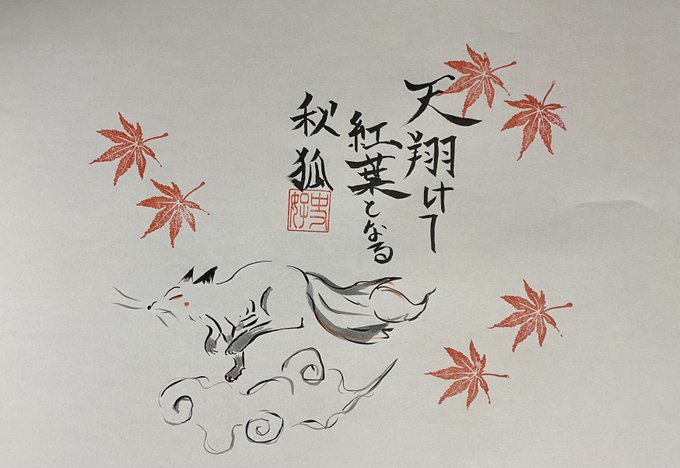 天翔けて
紅葉となる
秋狐